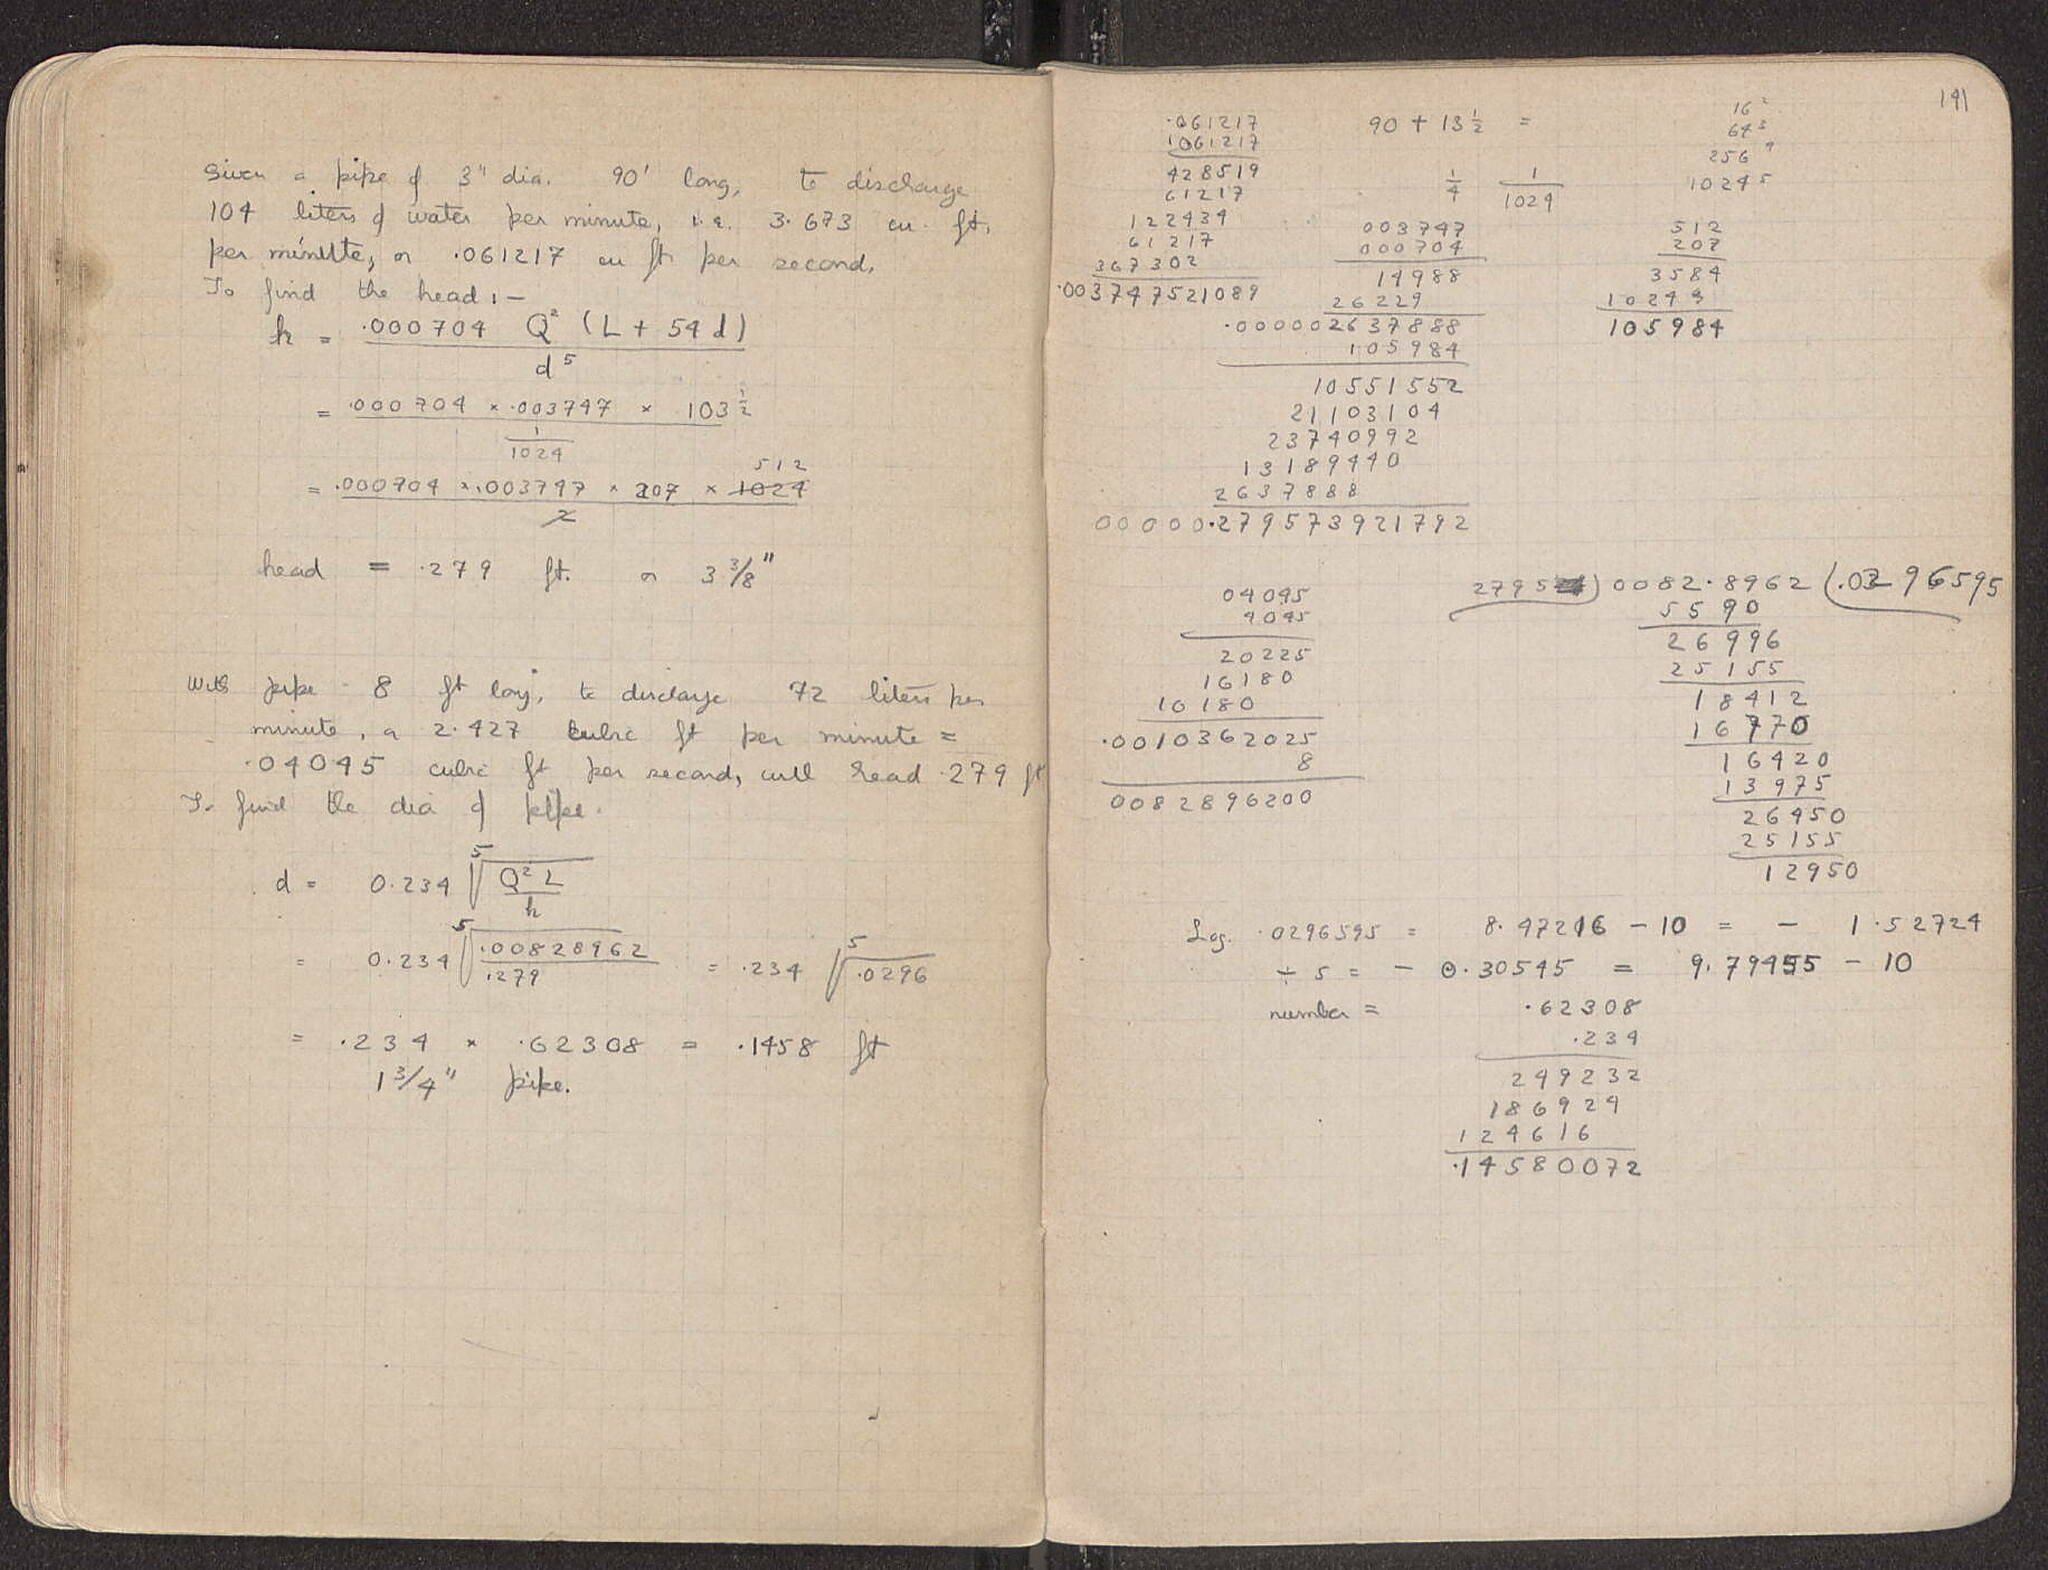 Given a pipe of 3" dia. 90' long, to discharge
104 liters of water per minute, i.e. 3.673 cu. ft.
per minute, or .061217 cu ft per second.
To find the head :—
h = .000704 Q² (L + 54 d)
d⁵
= .000704 × .003747 × 103 ½
1
1024
512
= .000704 × .003747 × 207 × 1024
2
head = .279 ft. or 3 3/8"
With pipe 8 ft long, to discharge 72 liters per
minute, or 2.427 cubic ft per minute =
.04045 cubic ft per second, with head .279 ft
To find the dia of pipe.
d = 0.234 ⁵√ Q² L
h
= 0.234 ⁵√ .00828962 = .234 ⁵√ .0296
.279
= .234 × .62308 = .1458 ft
1 3/4" pipe.
141
.061217
1061217
428519
61217
122434
61217
367302
.003747521089
90 + 13 ½ =
1/4 1/1024
16²
64³
256⁴
1024⁵
003747
000704
14988
26229
.000002637888
105984
10551552
21103104
23740992
13189440
2637888
00000.279573921792
512
207
3584
1024
105984
04045
4045
20225
16180
16180
.0010362025
8
0082896200
2795 ) 0082.8962 ( .0296595
5590
26996
25155
18412
16770
16420
13975
26450
25155
12950
Log. .0296595 = 8.47216 - 10 = - 1.52724
÷ 5 = - 0.30545 = 9.79455 - 10
number = .62308
.234
249232
186924
124616
.14580072